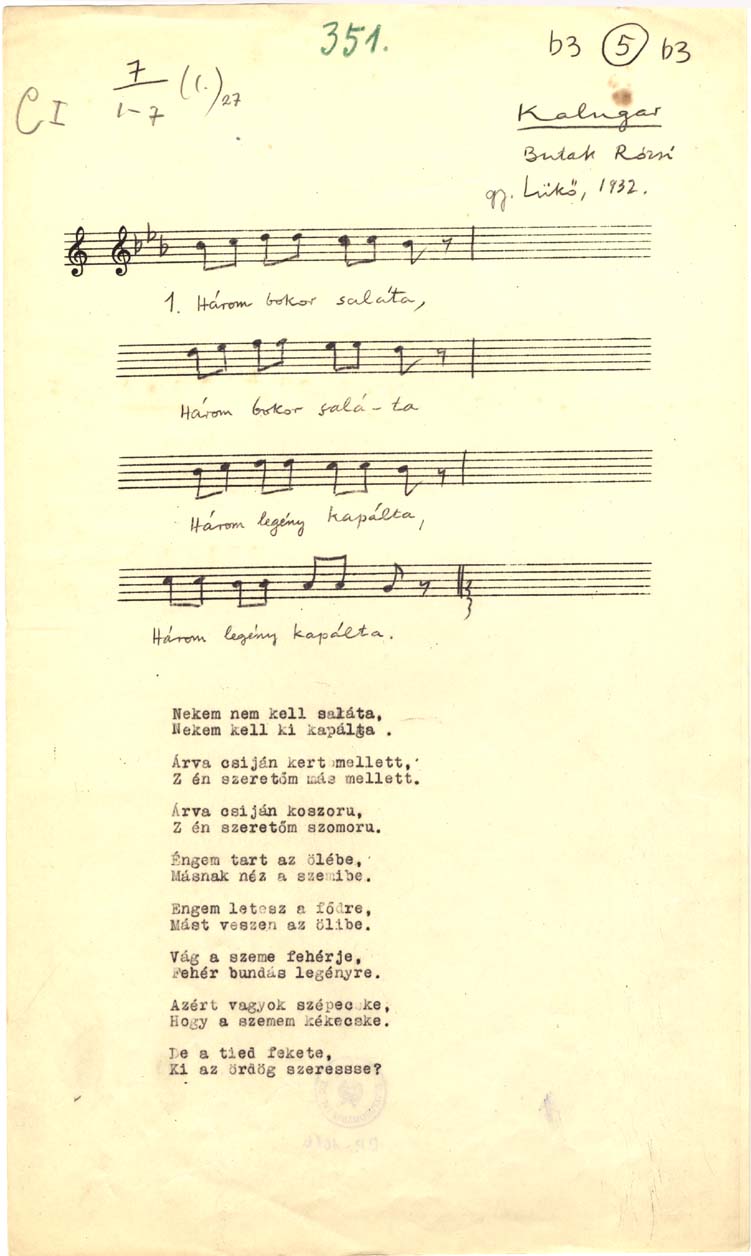 351.
b3 5 b3
C I 7/1-7 (1.)27
Kalugar
Butak Rózsi
gy. Lükő, 1932.
1. Három bokor saláta,
Három bokor salá-ta
Három legény kapálta,
Három legény kapálta.
Nekem nem kell saláta,
Nekem kell ki kapálta .
Árva csiján kert mellett,
Z én szeretőm más mellett.
Árva csiján koszoru,
Z én szeretőm szomoru.
Éngem tart az ölébe,
Másnak néz a szemibe.
Engem letesz a fődre,
Mást veszen az ölibe.
Vág a szeme fehérje,
Fehér bundás legényre.
Azért vagyok szépecske,
Hogy a szemem kékecske.
De a tied fekete,
Ki az ördög szeressse?